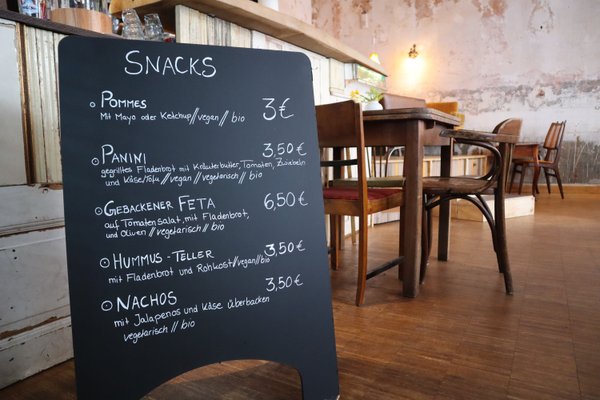 SNACKS
POMMES 3€
Mit Mayo oder Ketchup//vegan// bio
PANINI 3,50€
gegrilltes Fladenbrot mit Kräuterbutter, Tomaten, Zwiebeln
und Käse/Tofu//vegan//vegetarisch//bio
GEBACKENER FETA 6,50€
auf Tomatensalat, mit Fladenbrot,
und Oliven//vegetarisch//bio
HUMMUS-TELLER 3,50€
mit Fladenbrot und Rohkost//vegan//bio
NACHOS 3,50€
mit Jalapenos und Käse überbacken
vegetarisch//bio